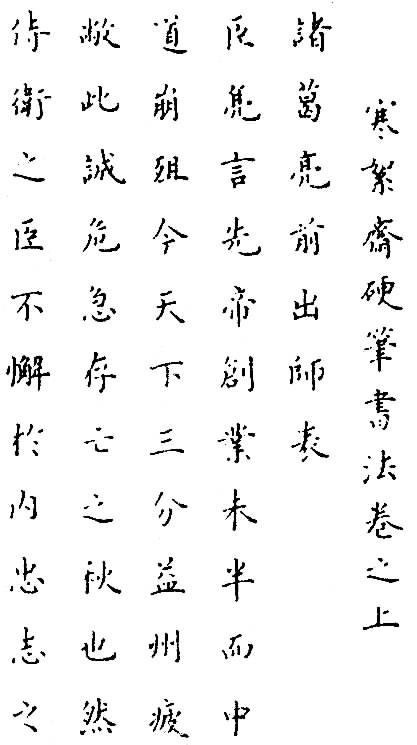 寒絜齋硬筆書法卷之上
諸葛亮前出師表
臣亮言先帝創業未半而中
道崩殂今天下三分益州疲
敝此誠危急存亡之秋也然
侍衛之臣不懈於內忠志之